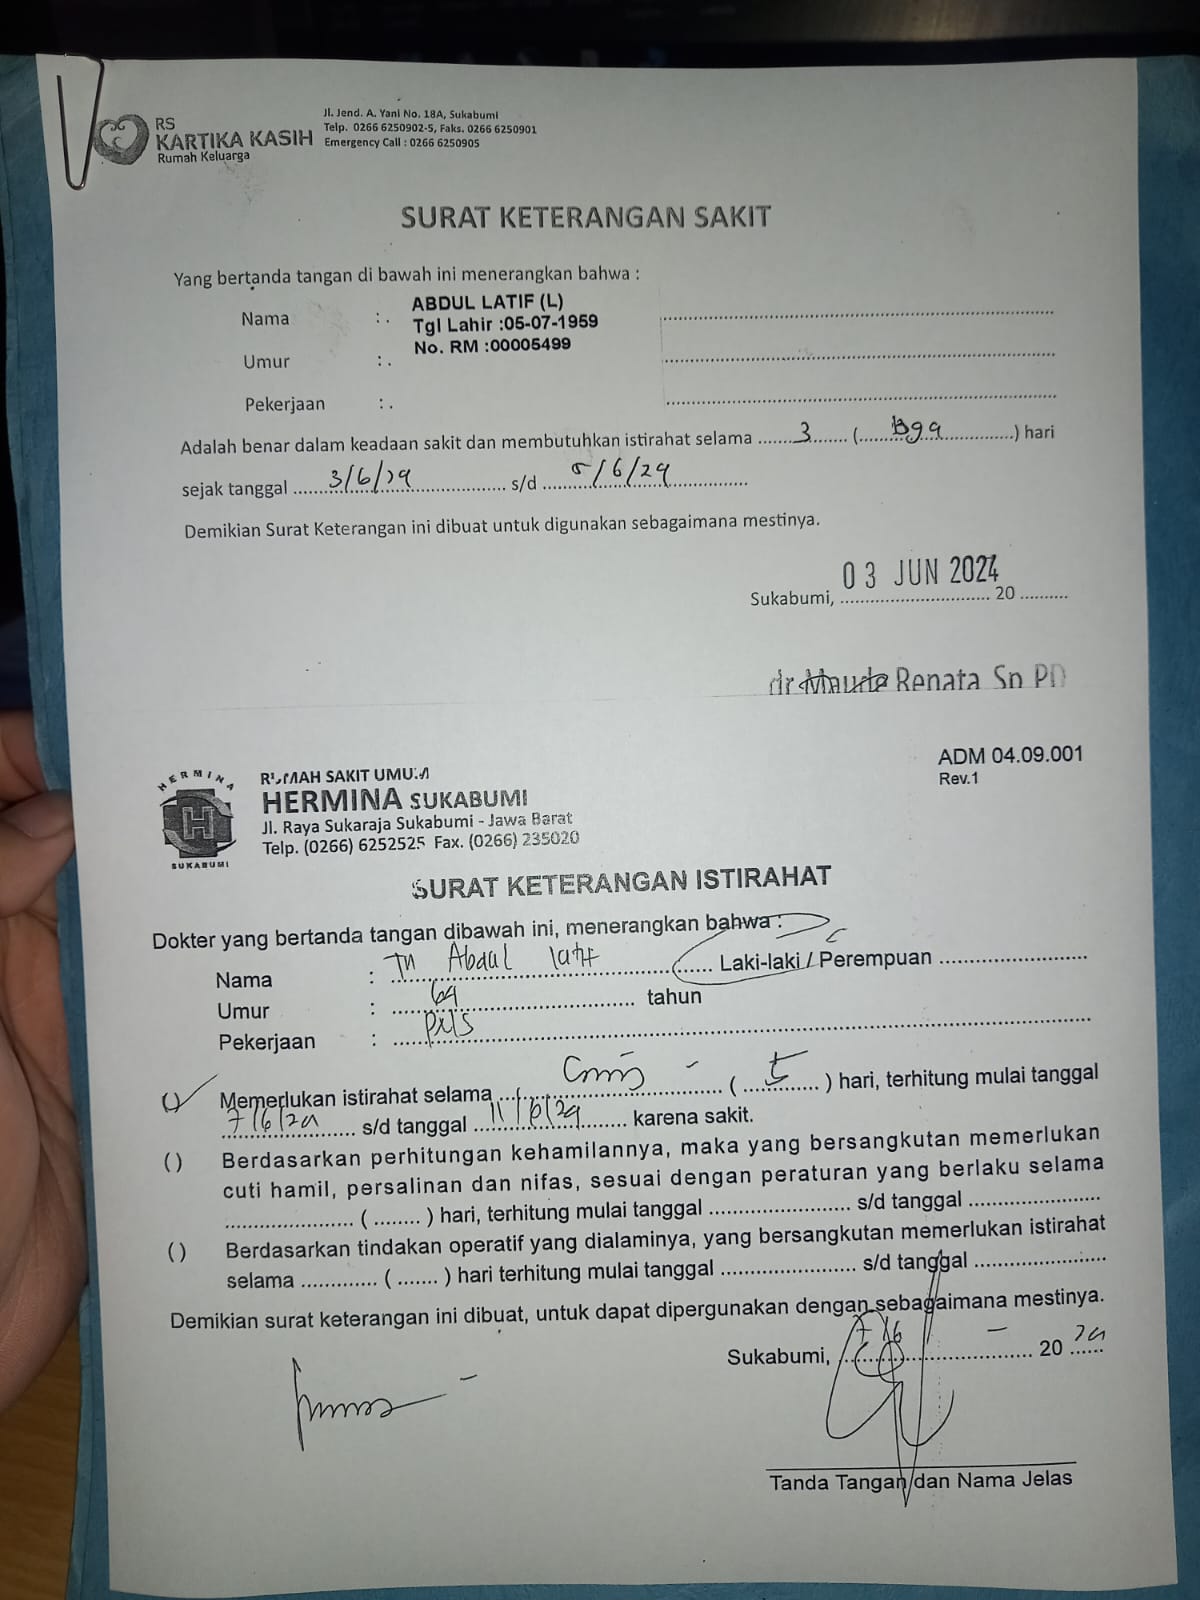 RS
KARTIKA KASIH
Rumah Keluarga
Jl. Jend. A. Yani No. 18A, Sukabumi
Telp. 0266 6250902-5, Faks. 0266 6250901
Emergency Call : 0266 6250905
SURAT KETERANGAN SAKIT
Yang bertanda tangan di bawah ini menerangkan bahwa :
Nama : . ABDUL LATIF (L)
Tgl Lahir :05-07-1959
No. RM :00005499
Umur : .
Pekerjaan : .
Adalah benar dalam keadaan sakit dan membutuhkan istirahat selama 3 ( ) hari
sejak tanggal 3/6/24 s/d 5/6/24
Demikian Surat Keterangan ini dibuat untuk digunakan sebagaimana mestinya.
03 JUN 2024
Sukabumi, 20
dr Renata Sp PD
HERMINA
SUKABUMI
RUMAH SAKIT UMUM
HERMINA SUKABUMI
Jl. Raya Sukaraja Sukabumi - Jawa Barat
Telp. (0266) 6252525 Fax. (0266) 235020
ADM 04.09.001
Rev.1
SURAT KETERANGAN ISTIRAHAT
Dokter yang bertanda tangan dibawah ini, menerangkan bahwa :
Nama : Tn Abdul latif Laki-laki / Perempuan
Umur : 64 tahun
Pekerjaan :
() Memerlukan istirahat selama ( 5 ) hari, terhitung mulai tanggal
7/6/24 s/d tanggal 11/6/24 karena sakit.
( ) Berdasarkan perhitungan kehamilannya, maka yang bersangkutan memerlukan
cuti hamil, persalinan dan nifas, sesuai dengan peraturan yang berlaku selama
( ) hari, terhitung mulai tanggal s/d tanggal
( ) Berdasarkan tindakan operatif yang dialaminya, yang bersangkutan memerlukan istirahat
selama ( ) hari terhitung mulai tanggal s/d tanggal
Demikian surat keterangan ini dibuat, untuk dapat dipergunakan dengan sebagaimana mestinya.
Sukabumi, 7/6 20 24
Tanda Tangan dan Nama Jelas